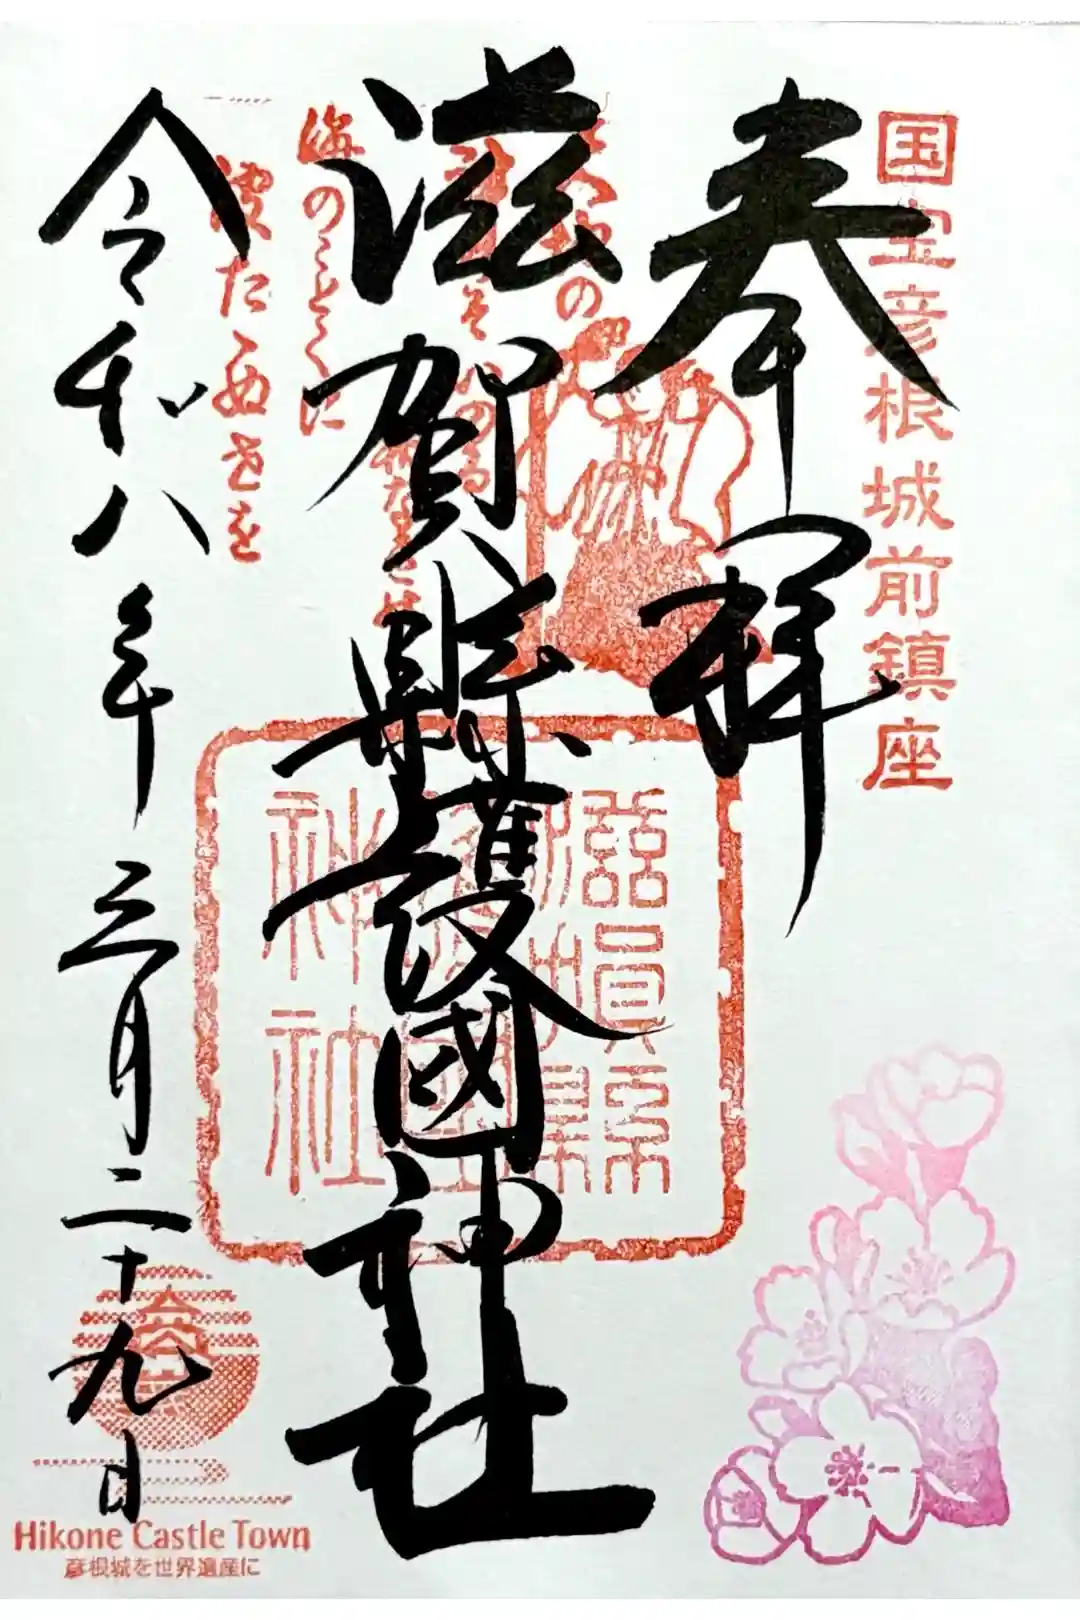 国宝彦根城前鎮座
奉拝
滋賀縣護國神社
海のことくに
波たゝぬせを
令和八年三月二十九日
Hikone Castle Town
彦根城を世界遺産に